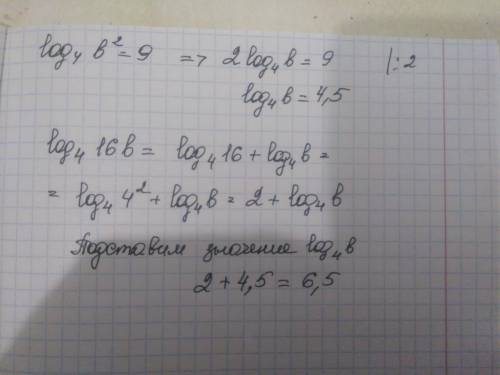 log₄ b² = 9 => 2 log₄ b = 9 |: 2
log₄ b = 4,5
log₄ 16b = log₄ 16 + log₄ b =
= log₄ 4² + log₄ b = 2 + log₄ b
Подставим значение log₄ b
2 + 4,5 = 6,5